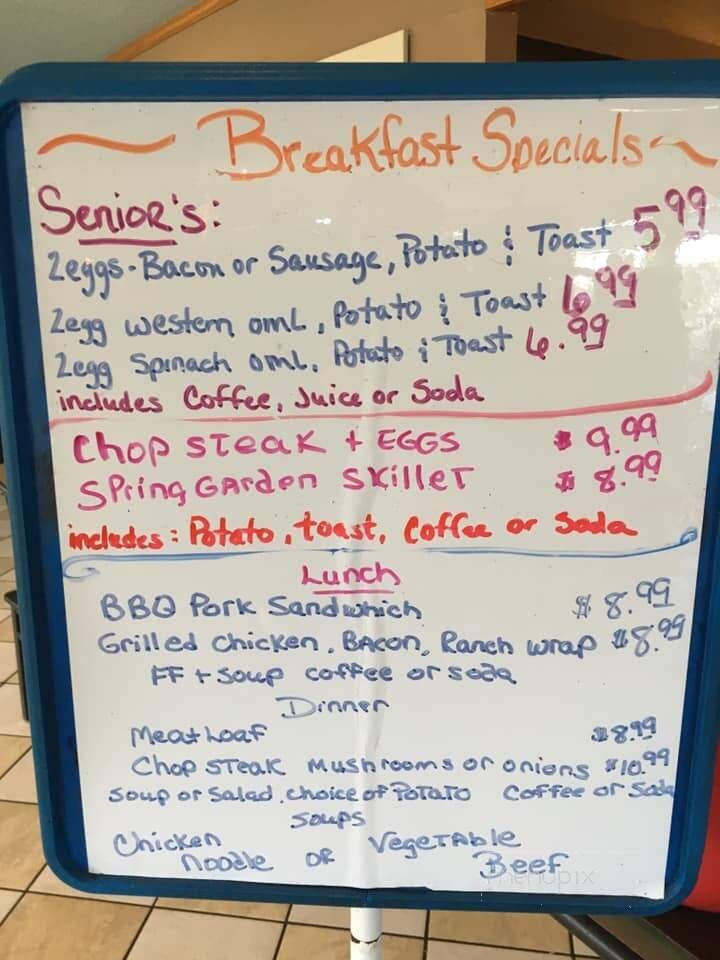 Breakfast Specials
Senior's:
2eggs - Bacon or Sausage, Potato & Toast 5.99
2egg western oml, Potato & Toast 6.99
2egg Spinach oml, Potato & Toast 6.99
includes Coffee, Juice or Soda
Chop Steak + EGGS $ 9.99
Spring Garden Skillet $ 8.99
includes: Potato, toast, Coffee or Soda
Lunch
BBQ Pork Sandwhich $ 8.99
Grilled Chicken, Bacon, Ranch wrap $8.99
FF + Soup coffee or soda
Dinner
Meat Loaf $8.99
Chop Steak Mushrooms or onions $10.99
Soup or Salad, choice of Potato Coffee or Soda
Soups
Chicken Noodle or Vegetable Beef
menupix